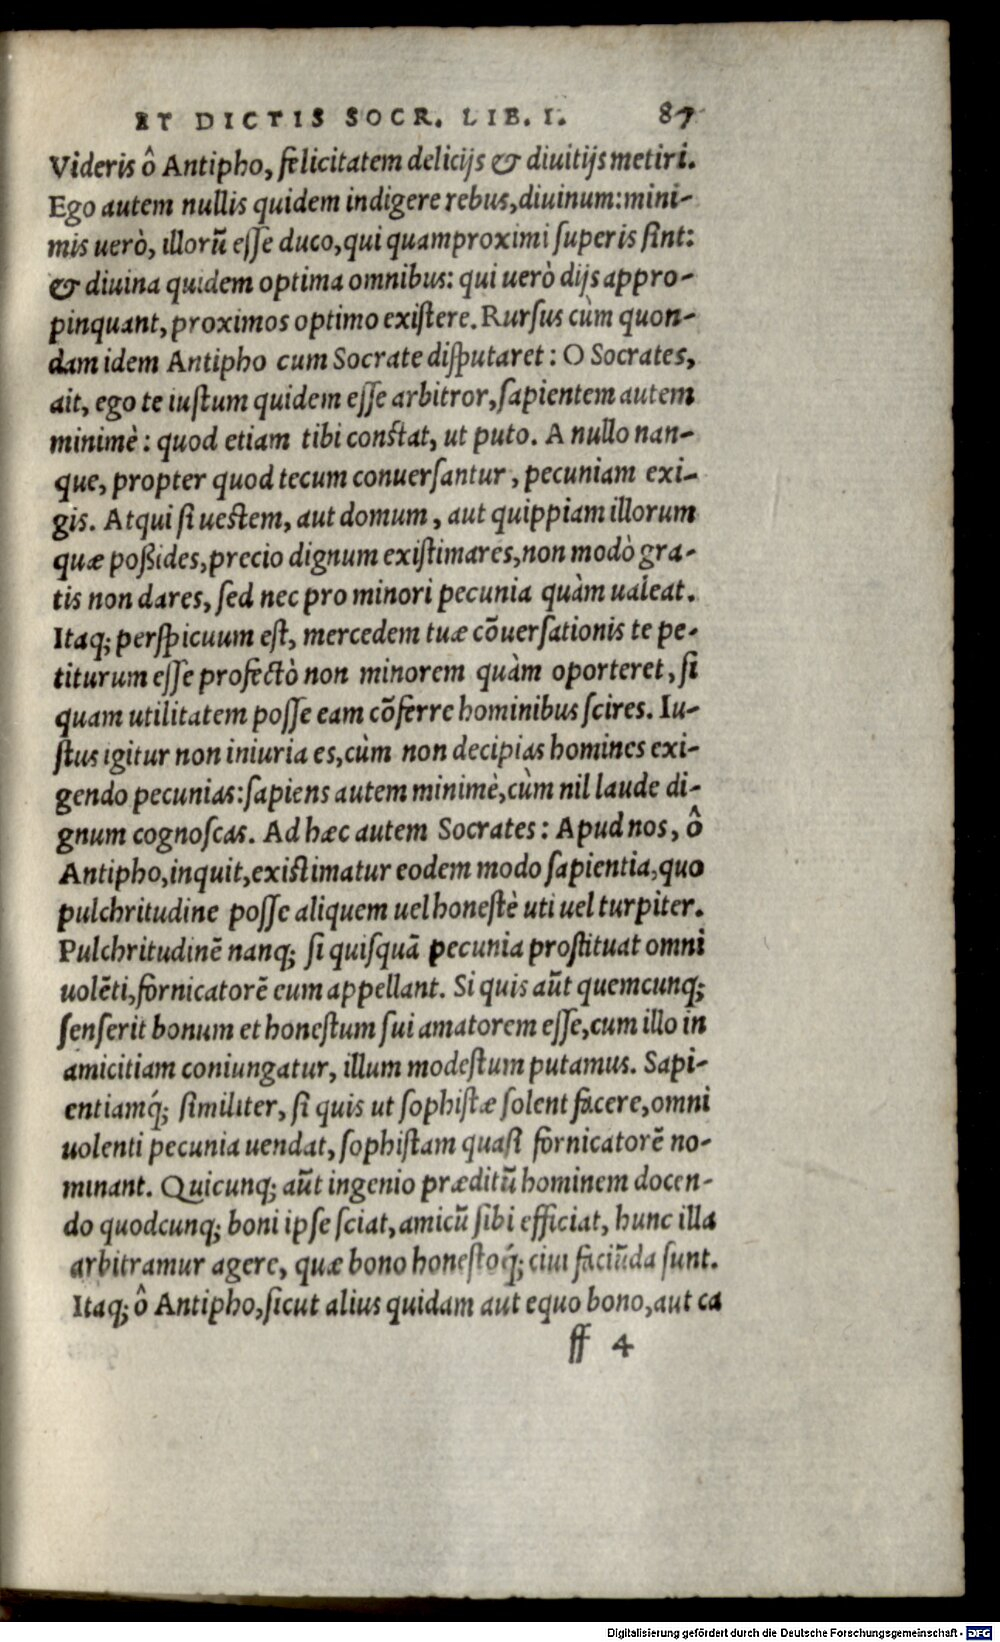 ET DICTIS SOCR. LIB. I. 87
Videris ô Antipho, felicitatem delicijs & diuitijs metiri.
Ego autem nullis quidem indigere rebus, diuinum: mini-
mis uerò, illorũ eſſe duco, qui quamproximi ſuperis ſint:
& diuina quidem optima omnibus: qui uerò dijs appro-
pinquant, proximos optimo exiſtere. Rurſus cùm quon-
dam idem Antipho cum Socrate diſputaret: O Socrates,
ait, ego te iuſtum quidem eſſe arbitror, ſapientem autem
minimè: quod etiam tibi conſtat, ut puto. A nullo nan-
que, propter quod tecum conuerſantur, pecuniam exi-
gis. Atqui ſi ueſtem, aut domum, aut quippiam illorum
quæ poßides, precio dignum exiſtimares, non modò gra-
tis non dares, ſed nec pro minori pecunia quàm ualeat.
Itaq; perſpicuum eſt, mercedem tuæ cõuerſationis te pe-
titurum eſſe profectò non minorem quàm oporteret, ſi
quam utilitatem poſſe eam cõferre hominibus ſcires. Iu-
ſtus igitur non iniuria es, cùm non decipias homines exi-
gendo pecunias: ſapiens autem minimè, cùm nil laude di-
gnum cognoſcas. Ad hæc autem Socrates: Apud nos, ô
Antipho, inquit, exiſtimatur eodem modo ſapientia, quo
pulchritudine poſſe aliquem uel honeſtè uti uel turpiter.
Pulchritudinẽ nanq; ſi quiſquã pecunia proſtituat omni
uolẽti, fornicatorẽ eum appellant. Si quis aũt quemcunq;
ſenſerit bonum et honeſtum ſui amatorem eſſe, cum illo in
amicitiam coniungatur, illum modeſtum putamus. Sapi-
entiamq́; ſimiliter, ſi quis ut ſophiſtæ ſolent facere, omni
uolenti pecunia uendat, ſophiſtam quaſi fornicatorẽ no-
minant. Quicunq; aũt ingenio præditũ hominem docen-
do quodcunq; boni ipſe ſciat, amicũ ſibi efficiat, hunc illa
arbitramur agere, quæ bono honeſtoq́; ciui faciũda ſunt.
Itaq; ô Antipho, ſicut alius quidam aut equo bono, aut ca
ff 4
Digitalisierung gefördert durch die Deutsche Forschungsgemeinschaft - DFG